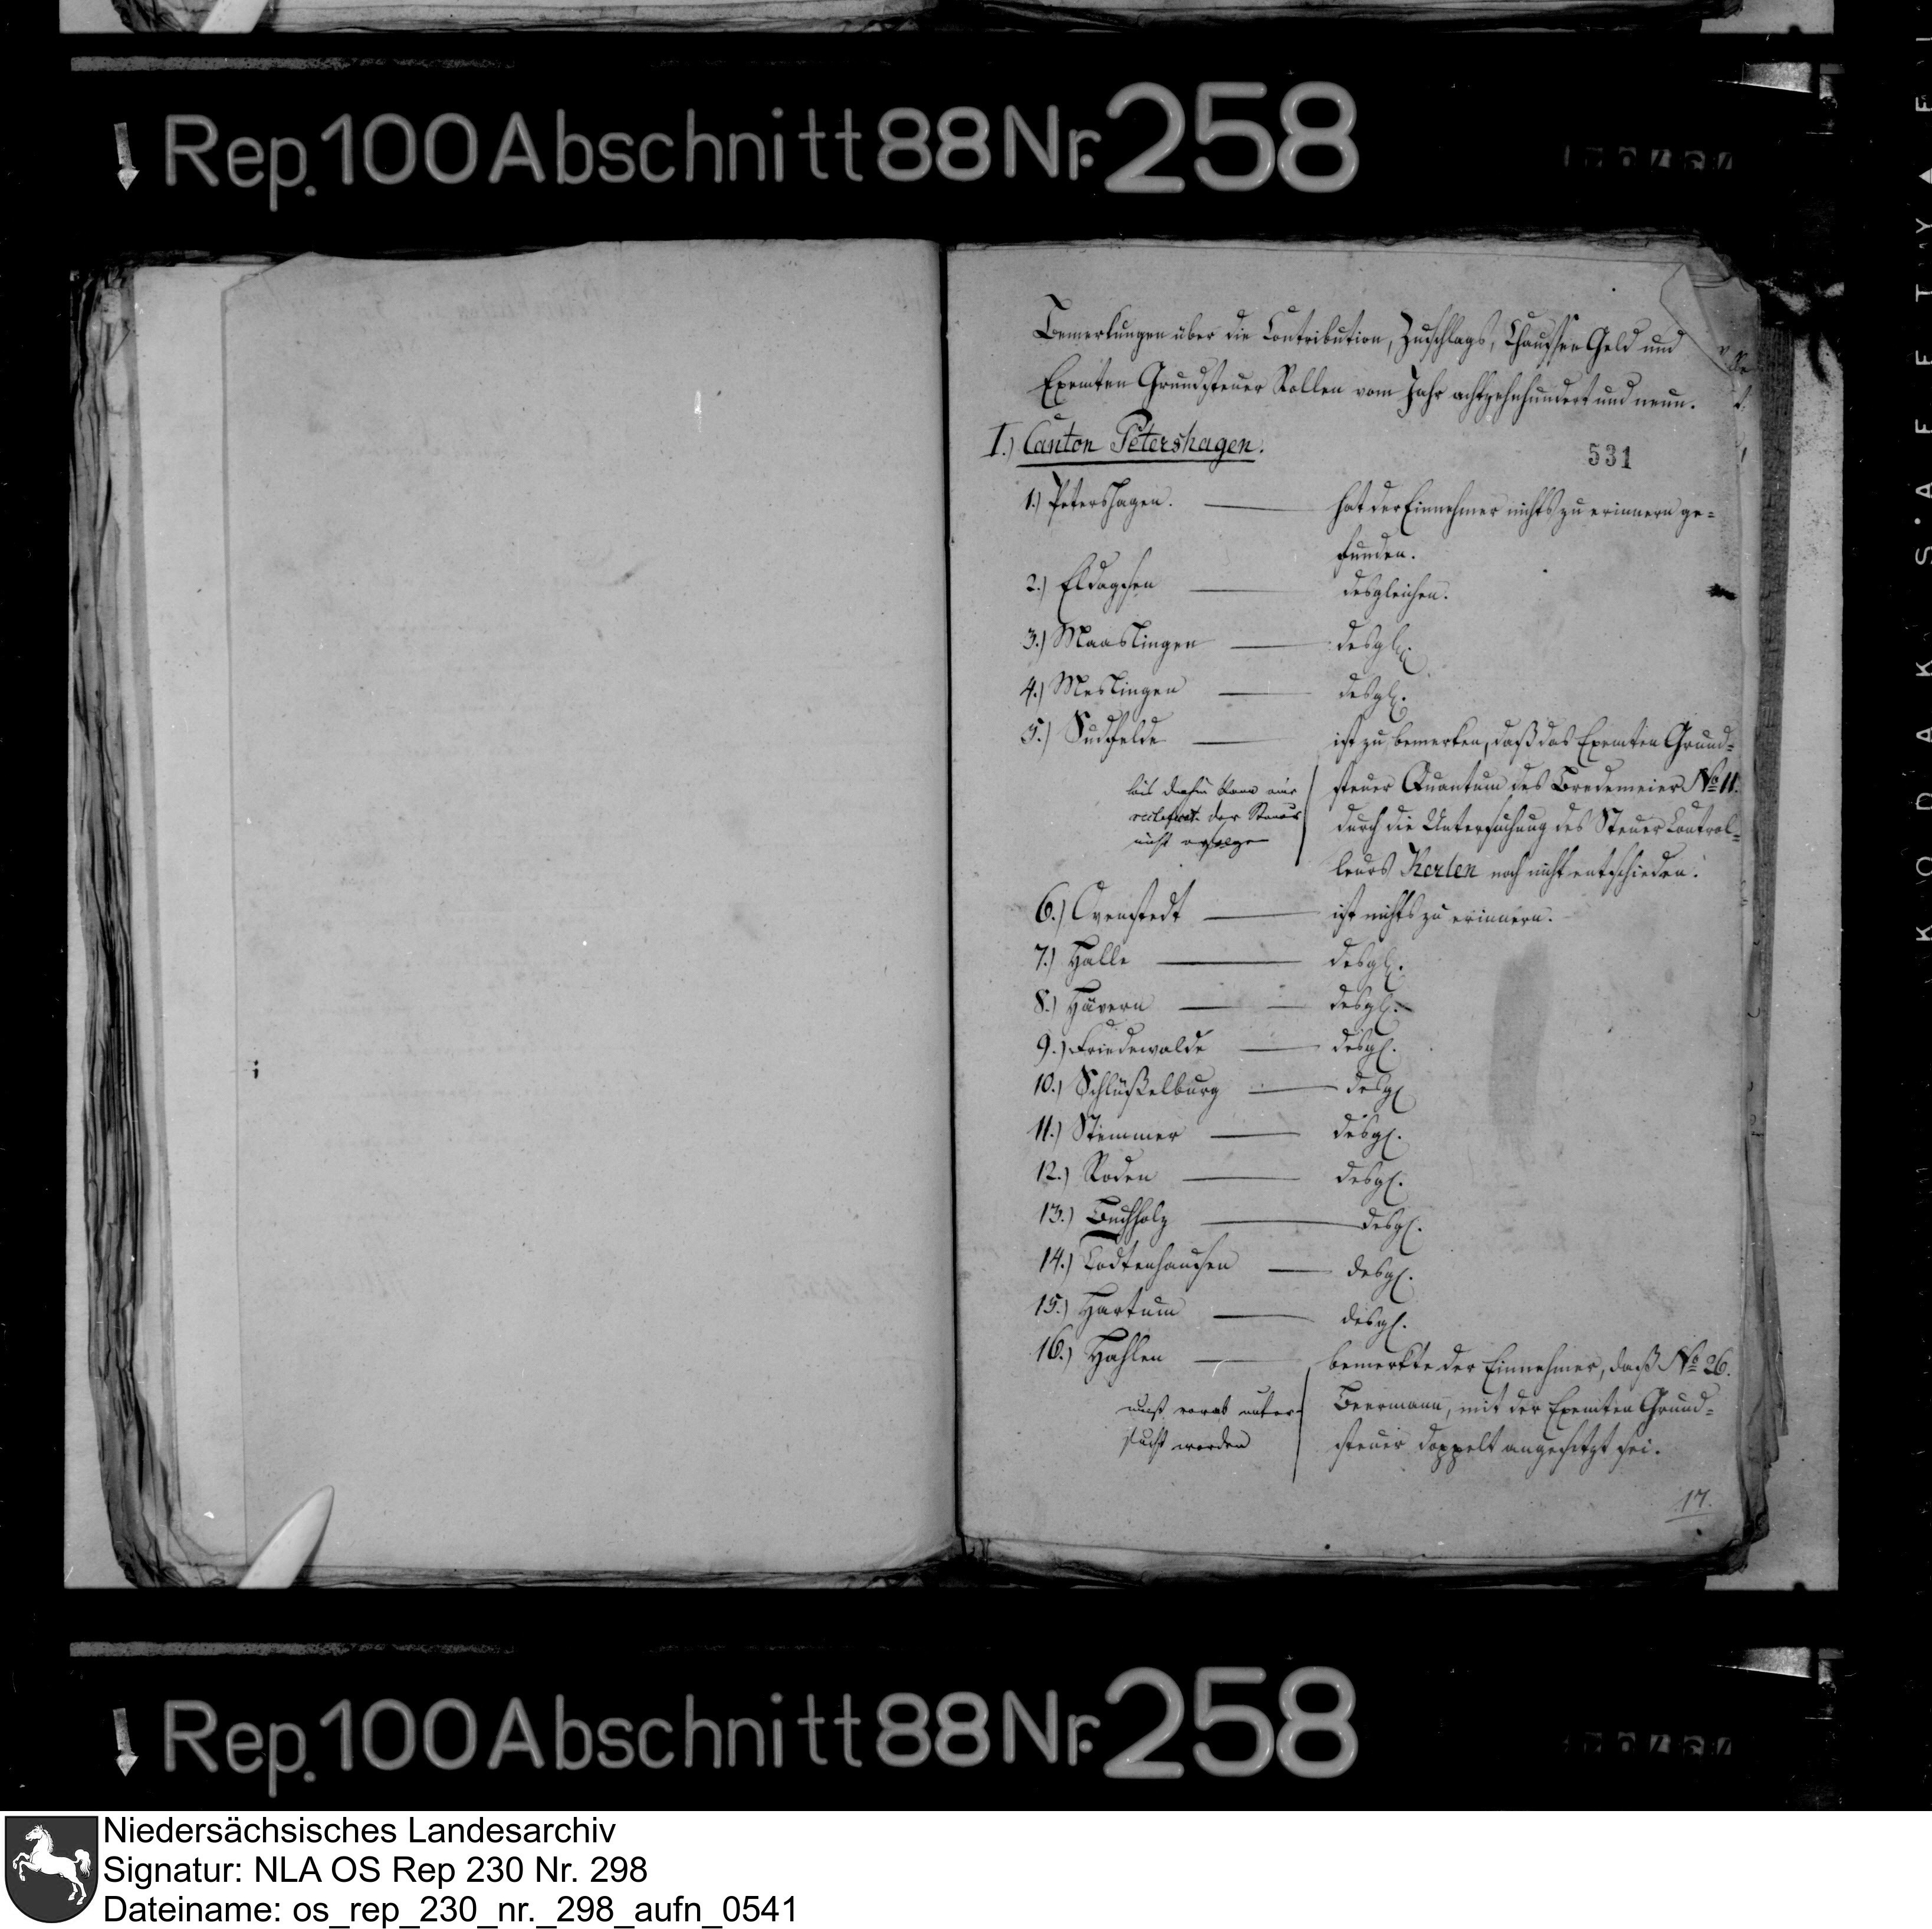 Rep. 100 Abschnitt 88 Nr. 258
Bemerkungen über die Contribution, Zuschlags, Chaussee Geld und
Exemten Grundsteuer Rollen vom Jahr achtzehnhundert und neun.
I.) Canton Petershagen.
531
1.) Petershagen. — hat der Einnehmer nichts zu erinnern ge=
funden.
2.) Eldagsen — desgleichen.
3.) Maaslingen — desgl.
4.) Meslingen — desgl.
5.) Südfelde — ist zu bemerken, daß das Exemten Grund=
steuer Quantum des Bredemeier No 11.
durch die Untersuchung des Steuer Control=
leurs Kerlen noch nicht entschieden.
bis dahin kann eine
der Steuer
nicht erfolgen
6.) Ovenstedt — ist nichts zu erinnern.
7.) Halle — desgl.
8.) Hävern — desgl.
9.) Friedewalde — desgl.
10.) Schlüßelburg — desgl
11.) Stemmer — desgl.
12.) Roden — desgl.
13.) Buchholz — desgl.
14.) Todtenhausen — desgl.
15.) Hartum — desgl.
16.) Hahlen — bemerkte der Einnehmer, daß No 26.
Beermann, mit der Exemten Grund=
steuer doppelt angesetzt sei.
muß unter=
sucht werden
17.
Rep. 100 Abschnitt 88 Nr. 258
Niedersächsisches Landesarchiv
Signatur: NLA OS Rep 230 Nr. 298
Dateiname: os_rep_230_nr._298_aufn_0541